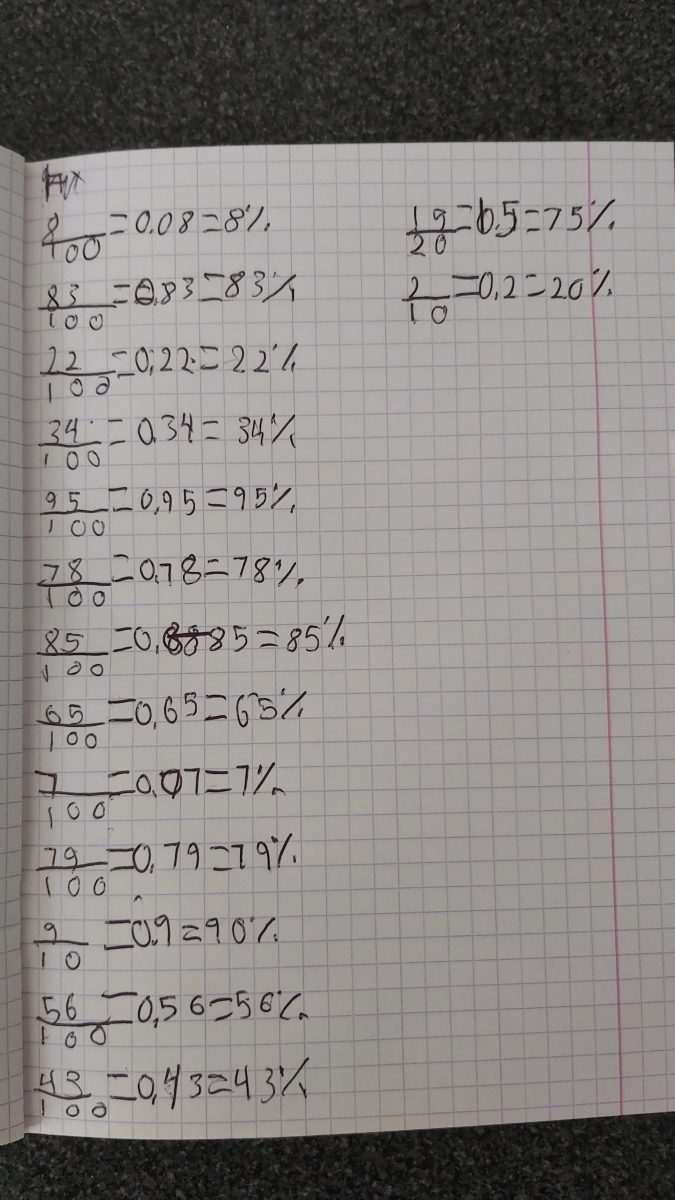 8/100 = 0.08 = 8%
83/100 = 0.83 = 83%
22/100 = 0,22 = 22%
34/100 = 0.34 = 34%
95/100 = 0,95 = 95%
78/100 = 0,78 = 78%
85/100 = 0,85 = 85%
65/100 = 0,65 = 65%
7/100 = 0,07 = 7%
79/100 = 0,79 = 79%
9/10 = 0,9 = 90%
56/100 = 0,56 = 56%
43/100 = 0,43 = 43%
19/20 = 0.5 = 75%
2/10 = 0,2 = 20%